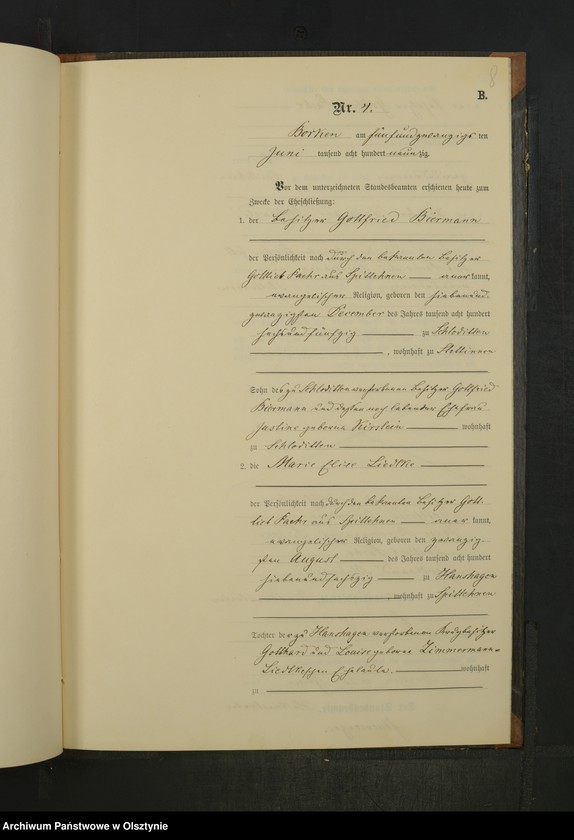 8
B.
Nr. 4.
Borken am fünfundzwanzigsten
Juni tausend acht hundert neunzig.
Vor dem unterzeichneten Standesbeamten erschienen heute zum
Zwecke der Eheschließung:
1. der Besitzer Gottfried Biermann
der Persönlichkeit nach durch den bekannten Besitzer
Gottlieb aus Spittehnen anerkannt,
evangelischer Religion, geboren den siebenund-
zwanzigsten December des Jahres tausend acht hundert
sechsundfünfzig zu Schloditten
, wohnhaft zu Stettinnen
Sohn des zu Schloditten verstorbenen Besitzer Gottfried
Biermann und dessen noch lebenden Ehefrau
Justine geborne Kirstein wohnhaft
zu Schloditten
2. die Marie Elise Liedtke
der Persönlichkeit nach durch den bekannten Besitzer Gott-
lieb aus Spittehnen anerkannt,
evangelischer Religion, geboren den zwanzig-
sten August des Jahres tausend acht hundert
siebenundsechszig zu Hanshagen
, wohnhaft zu Spittehnen
Tochter der zu Hanshagen verstorbenen Krugbesitzer
Gotthard und Louise geborne Zimmermann-
Liedtkeschen Eheleute. wohnhaft
zu
Archiwum Państwowe w Olsztynie